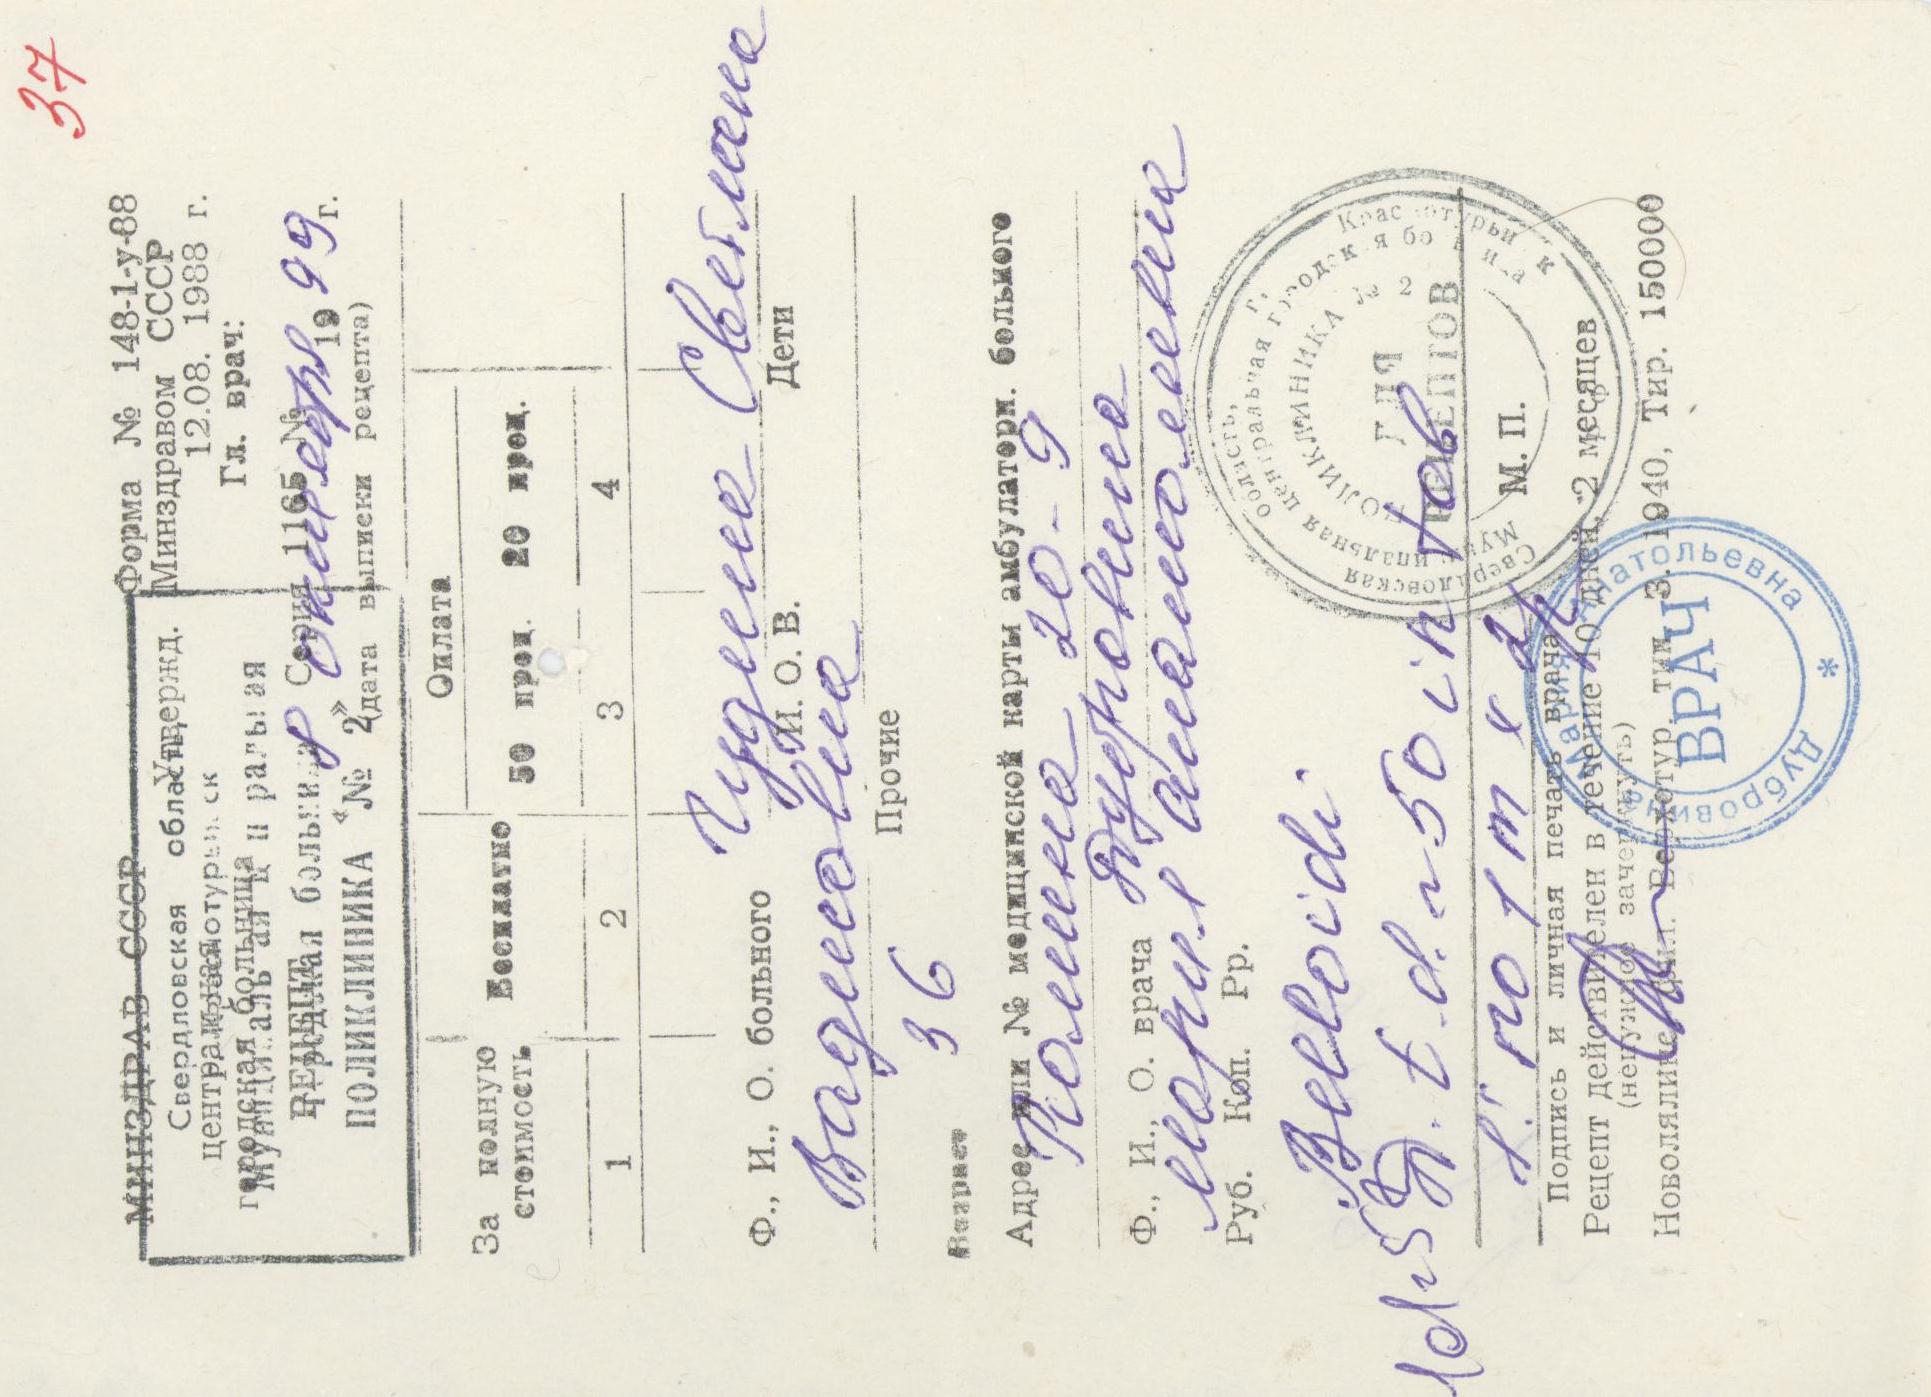 37
Форма № 148-1-у-88
Утвержд. Минздравом СССР
12.08. 1988 г.
Гл. врач:
МИНЗДРАВ СССР
Свердловская область,
Краснотурьинск
центральная
городская больница
Муниципальная центральная
РЕЦЕПТ
городская больница
ПОЛИКЛИНИКА № 2
Серия 1165 №
„8" октября 1999 г.
(дата выписки рецепта)
За полную стоимость
Бесплатно
Оплата
50 проц.
20 проц.
1
2
3
4
Ф., И., О. больного Чудина Светлана
Вадимовна
И. О. В.
Дети
Прочие
Возраст 36
Адрес или № медицинской карты амбулаторн. больного
20-9
Ф., И., О. врача Дубровина
Мария Анатольевна
Руб. Коп. Рр.
Belloidi
D. t. d. N 50 in tab
S. по 1 т х 2 р
М. П.
Подпись и личная печать врача
Рецепт действителен в течение 10 дней, 2 месяцев
(ненужное зачеркнуть)
Новолялинс фил. Верхотур. тип. З. 1940, Тир. 150000
Свердловская область, г. Краснотурьинск
Муниципальная центральная городская больница
ПОЛИКЛИНИКА № 2
ДЛЯ
РЕЦЕПТОВ
Дубровина Мария Анатольевна *
ВРАЧ